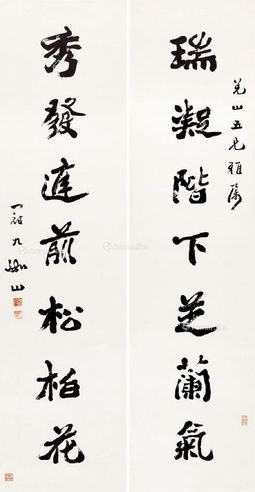 瑞凝階下芝蘭氣
秀發庭前松柏花
五兄雅屬
九
山